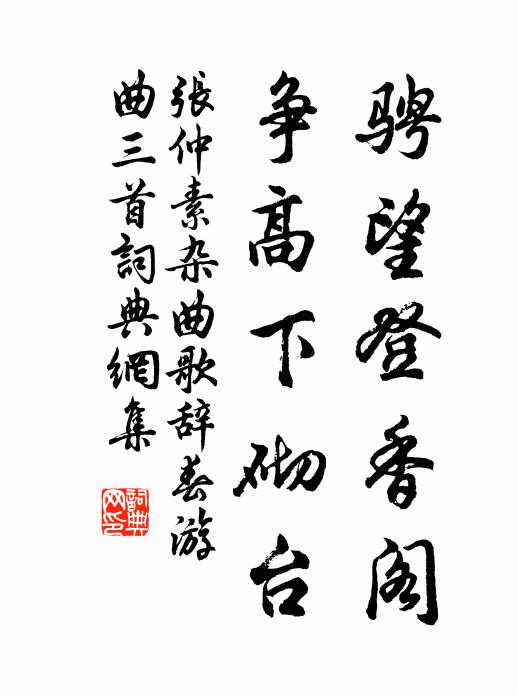 骋望登香阁
争高下砌台
張仲素杂曲歌辞春游
曲三首詞典網集
詞典网印